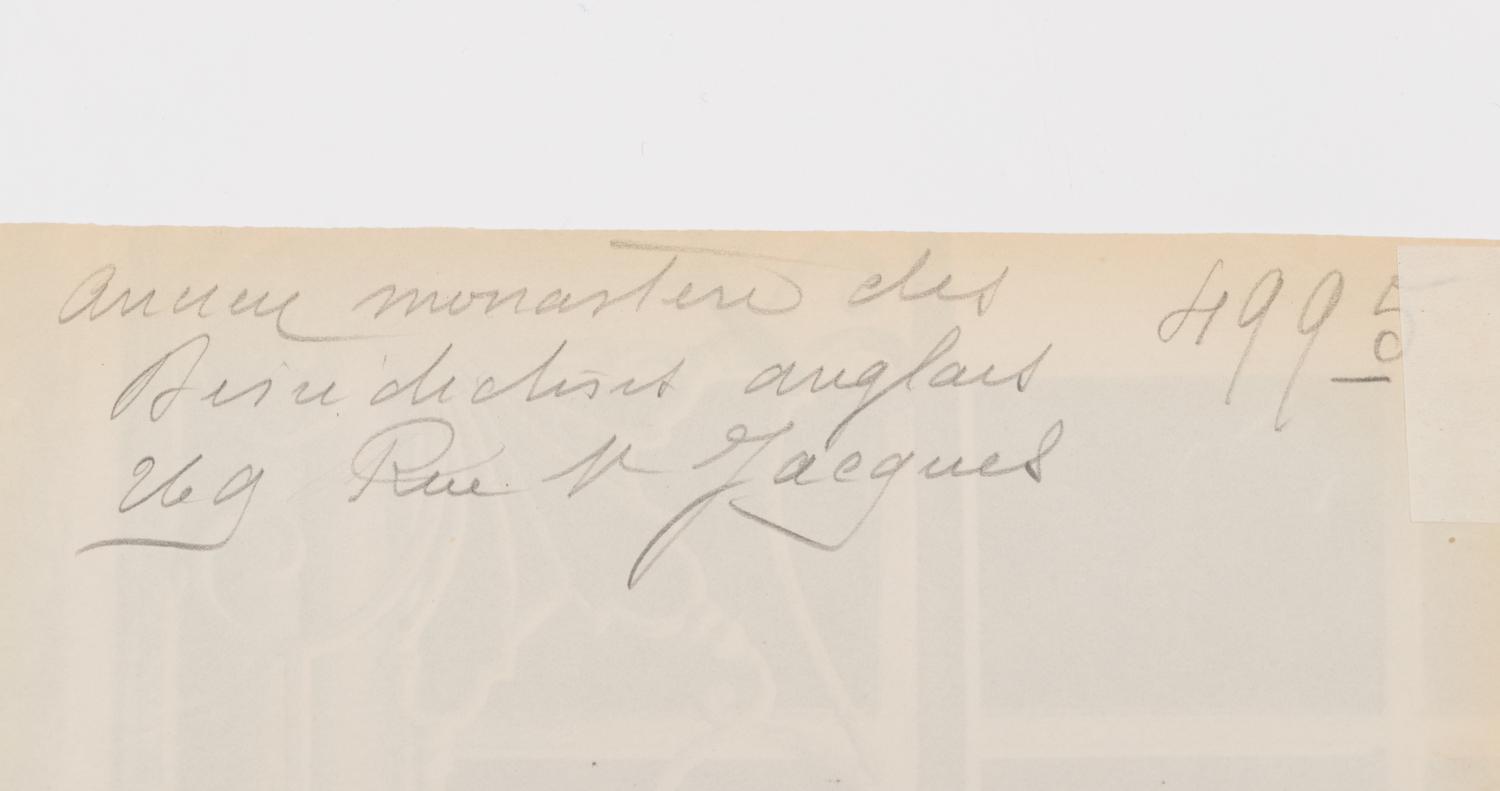 Ancien monastère des 4995
Bénédictins anglais
269 Rue St Jacques